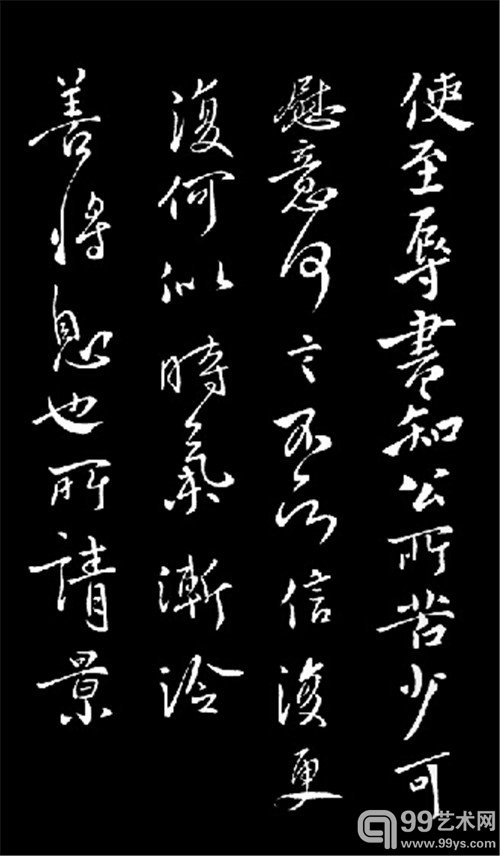 使至辱書知公所苦少可
慰意何言不諗信後更
復何似時氣漸冷
善將息也所請景
99艺术网
www.99ys.com